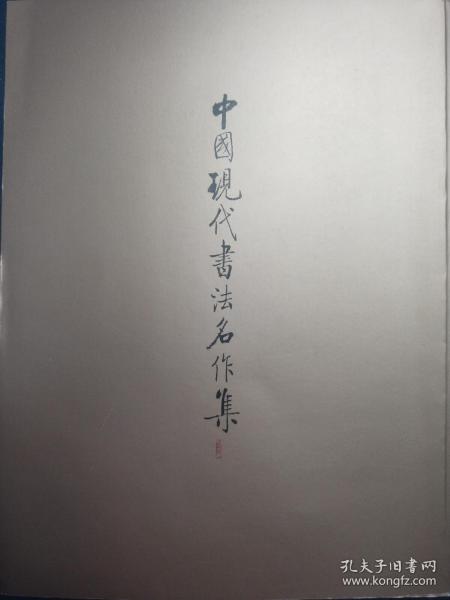 中國現代書法名作集
孔夫子旧书网
www.kongfz.com